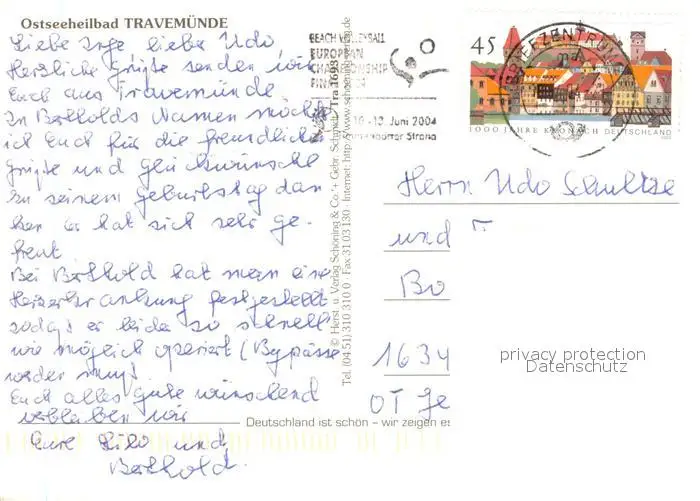 Ostseeheilbad TRAVEMÜNDE
Liebe Inge lieber Udo,
Herzliche Grüße senden wir
Euch aus Travemünde
In Bertholds Namen möchte
ich Euch für die freundlichen
Grüße und Glückwünsche
zu seinem Geburtstag dan
ken er hat sich sehr ge-
freut
Bei Berthold hat man eine
Herzerkrankung festgestellt
sodaß er leider so schnell
wie möglich operiert (Bypässe
werden muß
Euch alles gute wünschend
verbleiben wir
Eure Lilo und
Berthold.
BEACH VOLLEYBALL
EUROPEAN
CHAMPIONSHIP
10.-13. Juni 2004
Strand
BRIEFZENTRUM
45
1000 JAHRE KRONACH DEUTSCHLAND
© Herst. u. Verlag Schöning & Co. + Gebr. Schmidt
Tra 1693
Internet: http://www.schoening-verlag.de
Tel. (04 51) 310 310 0 · Fax 31 03 130
Herrn Udo Schultze
und
Bo
1634
OT Je
privacy protection
Datenschutz
Deutschland ist schön – wir zeigen es